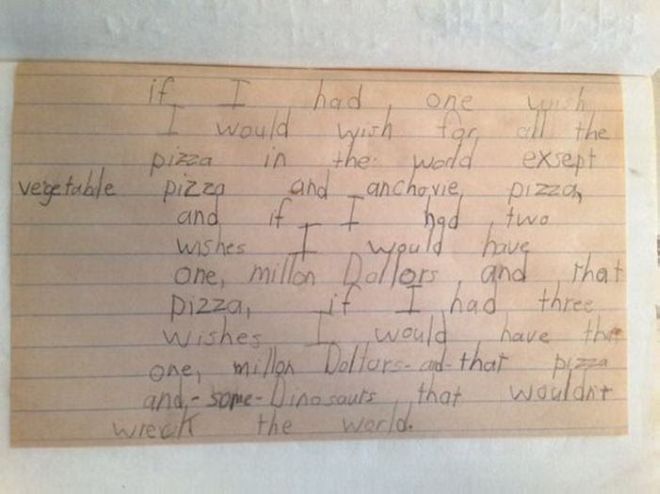 if I had one wish
I would wish for all the
pizza in the world exsept
vegetable pizza and anchovie pizza,
and if I had two
wishes I would have
one, millon Dollors and that
pizza, if I had three
wishes I would have the
one, millon Dollars-and-that pizza
and-some-Dinosaurs that wouldn't
wreck the world.